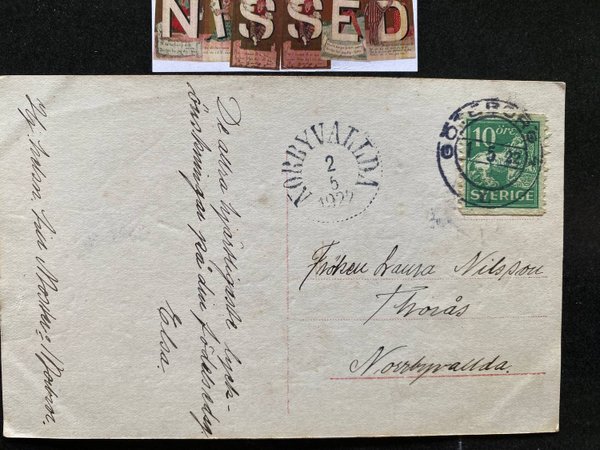 NISSED
De allra hjärtligaste lyck-
önskningar på din födelsedag
Elsa.
Hj. hälsn. från Moster o Morbror.
NORBYVALLDA
2
5
1922
GÖTEBORG
5 22
10 ÖRE
SVERIGE
Fröken Laura Nilsson
Thorås
Norrbyvallda.